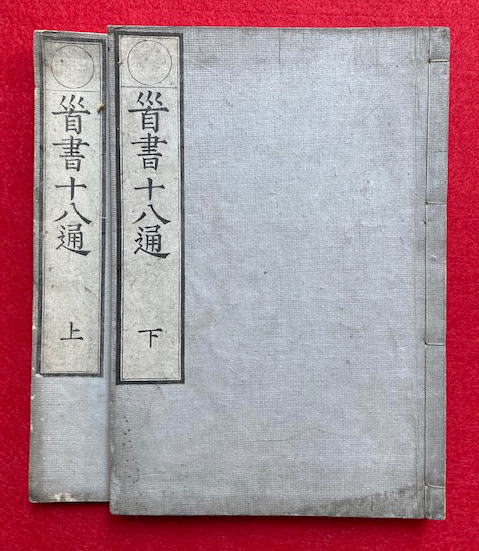 首書十八通
上
首書十八通
下